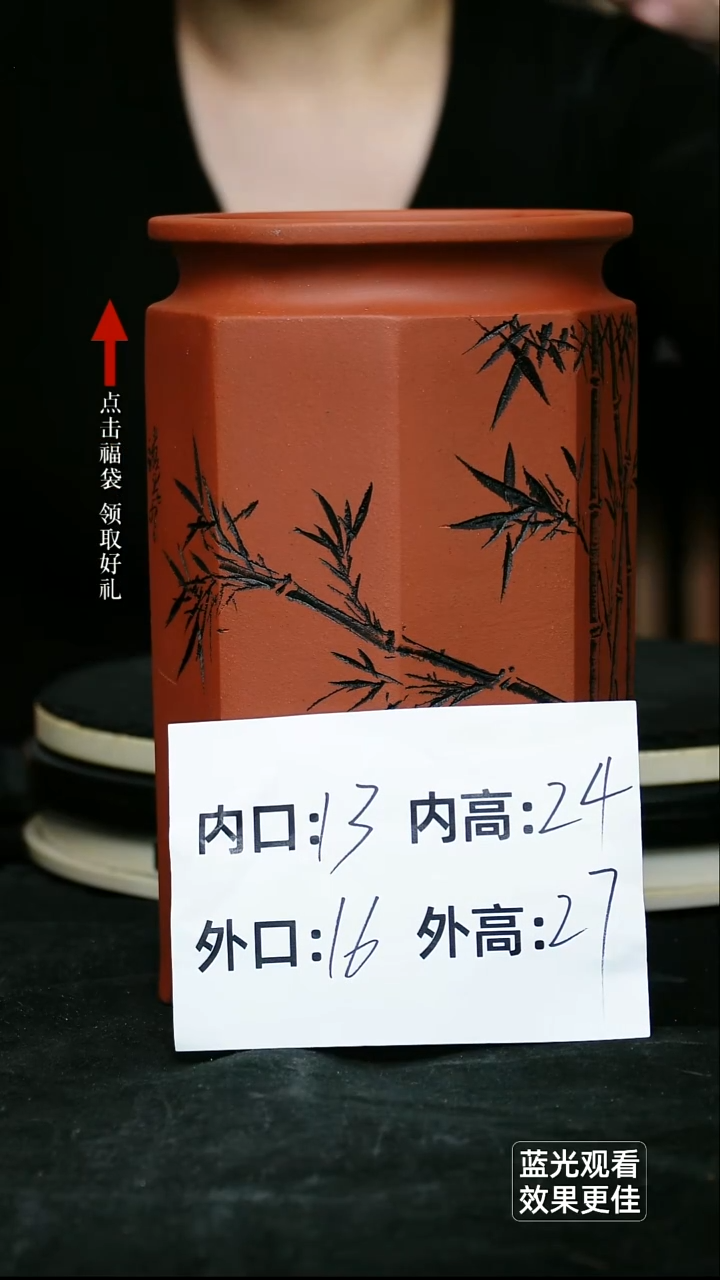 点击福袋 领取好礼
内口:13 内高:24
外口:16 外高:27
蓝光观看
效果更佳